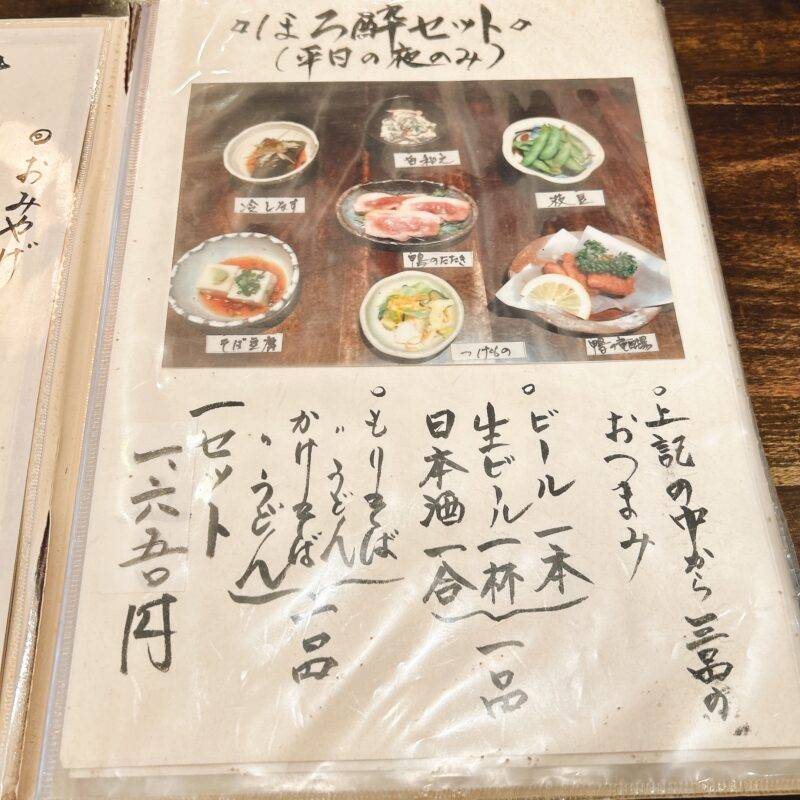 ほろ酔セット
(平日の夜のみ)
白和え
冷しなす
枝豆
鴨のたたき
そば豆腐
つけもの
鴨の竜田揚
上記の中から三品の
おつまみ
ビール一本
生ビール一杯
日本酒一合
一品
もりそば
〃うどん
かけそば
〃うどん
一品
一セット
一、六五〇円
回おみやげ